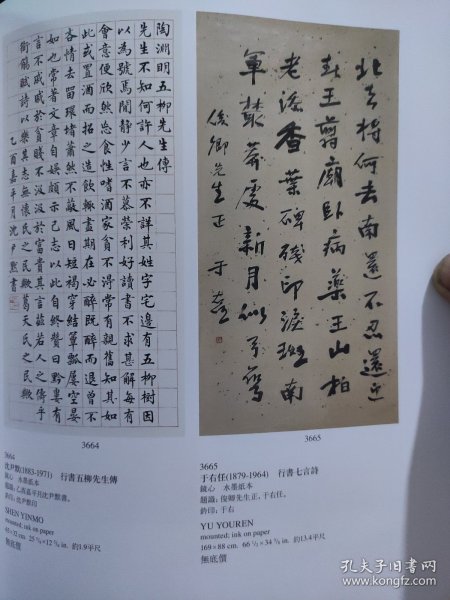 陶淵明五柳先生傳
先生不知何許人也亦不詳其姓字宅邊有五柳樹因
以為號焉閑靜少言不慕榮利好讀書不求甚解每有
會意便欣然忘食性嗜酒家貧不得常有親舊知其如
此或置酒而招之造飲輒盡期在必醉既醉而退曾不
吝情去留環堵蕭然不蔽風日短褐穿結簞瓢屢空晏
如也常著文章自娛頗示己志以此自終贊曰黔婁有
言不戚戚於貧賤不汲汲於富貴其言茲若人之儔乎
銜觴賦詩以樂其志無懷氏之民歟葛天氏之民歟
乙酉嘉平月沈尹默書
3664
北去將何去南還不忍還
王翦廟卧病藥王山柏
老 香葉碑殘印淚斑南
軍叢莽處新月似弓彎
俊卿先生正 于右任
3665
3664
沈尹默(1883-1971) 行書五柳先生傳
鏡心 水墨紙本
題識：乙酉嘉平月沈尹默書。
鈐印：沈尹默印
SHEN YINMO
mounted, ink on paper
65×32 cm. 25 ⅝×12 ⅝ in. 約1.9平尺
無底價
3665
于右任(1879-1964) 行書七言詩
鏡心 水墨紙本
題識：俊卿先生正，于右任。
鈐印：于右
YU YOUREN
mounted; ink on paper
169×88 cm. 66 ½×34 ⅝ in. 約13.4平尺
無底價
孔夫子旧书网